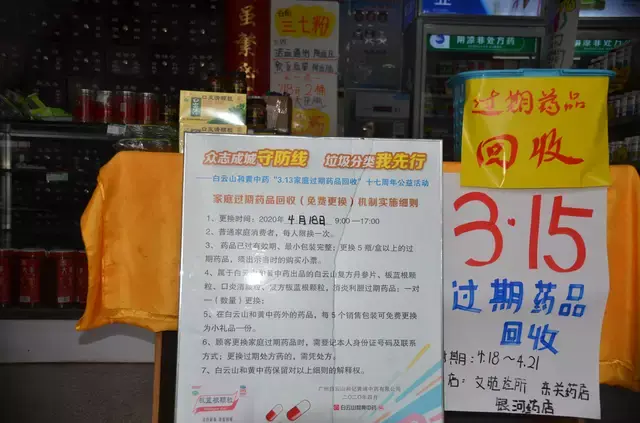 三七粉
阴凉非处方药
过期药品
回收
众志成城守防线 垃圾分类我先行
——白云山和黄中药“3.13家庭过期药品回收”十七周年公益活动
家庭过期药品回收（免费更换）机制实施细则
1、更换时间：2020年 4月18日 9:00—17:00
2、普通家庭消费者，每人限换一次。
3、药品已过有效期、最小包装完整；更换5瓶/盒以上的过
期药品，须出示当时的购买小票。
4、属于白云山和黄中药出品的白云山复方丹参片、板蓝根颗
粒、口炎清颗粒、复方板蓝根颗粒、消炎利胆过期药品：一对
一（数量）更换；
5、在白云山和黄中药外的药品，每5个销售包装可免费更换
为小礼品一份。
6、顾客更换家庭过期药品时，需登记本人身份证号码及联系
方式；更换过期处方药的，需凭处方；
7、白云山和黄中药保留对以上细则的解释权。
广州白云山和记黄埔中药有限公司
二〇二〇年四月
板蓝根颗粒
白云山和黄中药
3·15
过期药品
回收
期：4.18～4.21
店：
东关药店
银河药店